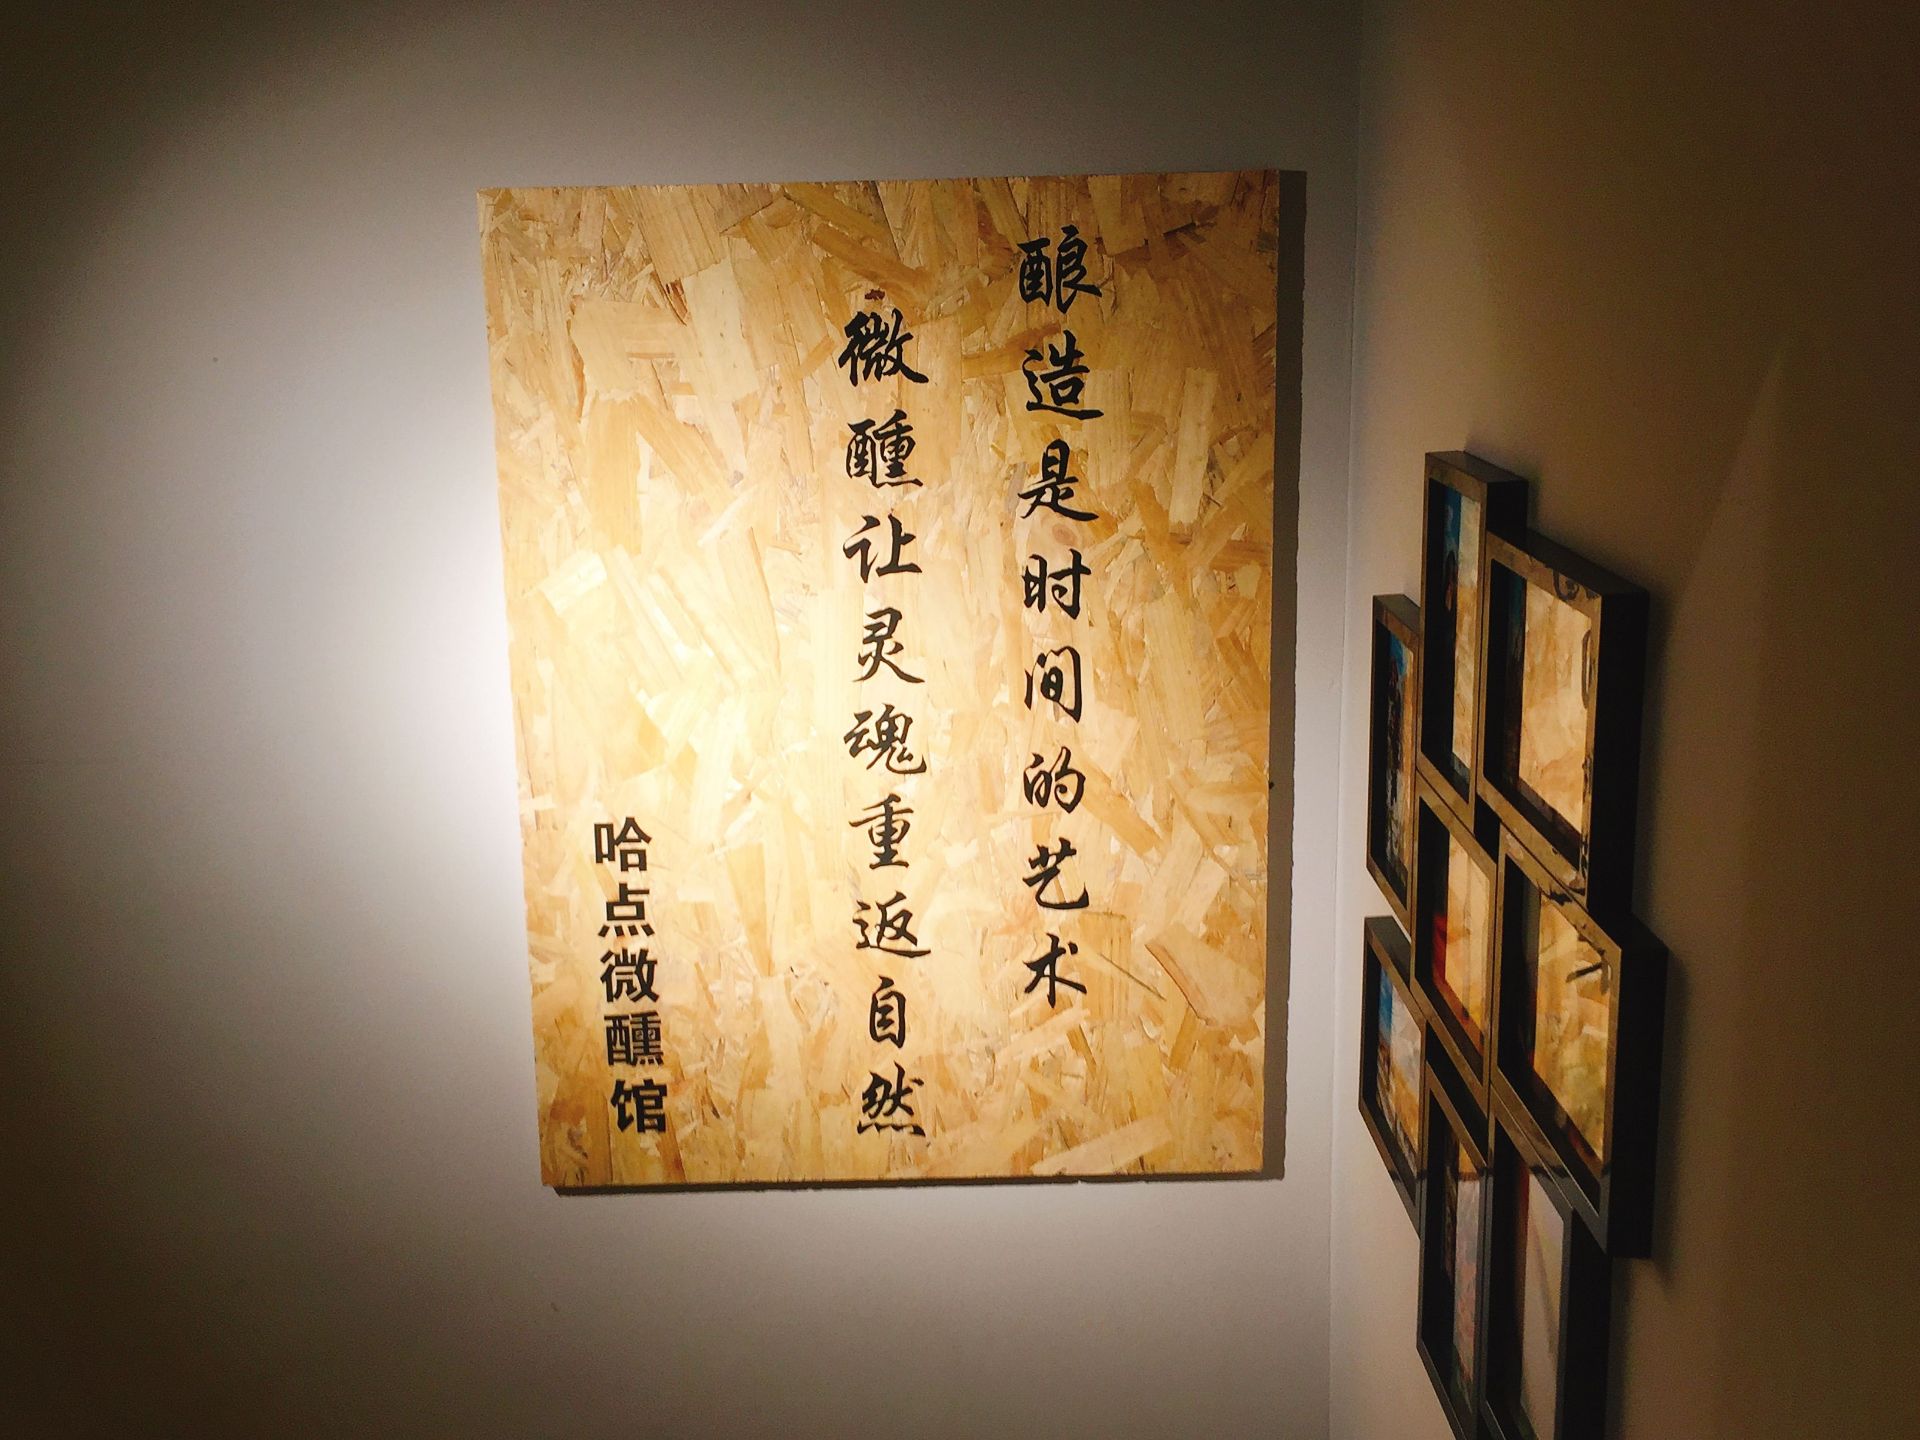 酿造是时间的艺术
微醺让灵魂重返自然
哈点微醺馆